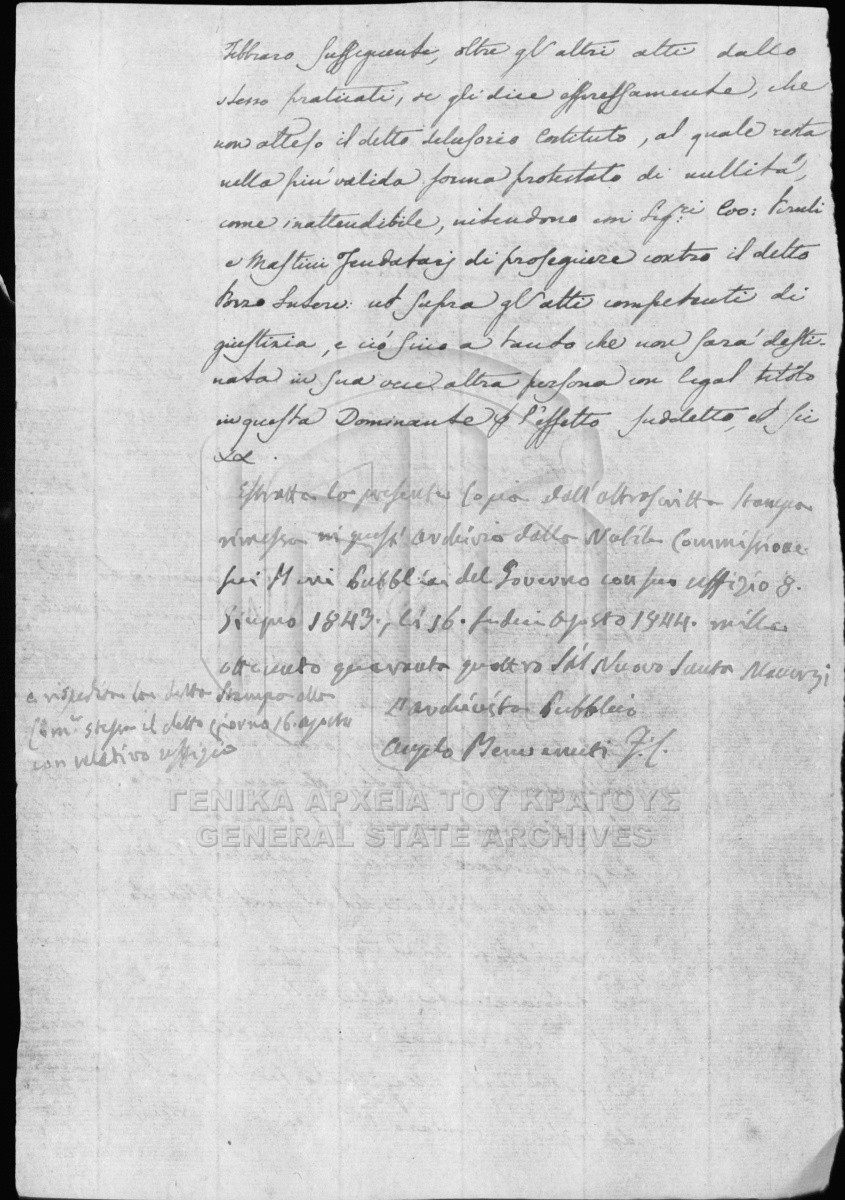 Febbraro susseguente, oltre gl'altri atti dallo
stesso praticati, se gli dice espressamente, che
non atteso il detto delusorio Costituto, al quale resta
nella più valida forma protestato di nullità,
come inattendibile, intendono essi Sig:ri Co:
e Mastini Feudatarj di proseguire contro il detto
ut supra gl'atti competenti di
giustizia, e ciò sino a tanto che non sarà desti-
nata in sua vece altra persona con legal titolo
in questa Dominante p l'effetto suddetto, et sic
Estratta la presente Copia dall'altroscritta Stampa
rimessa in quest'archivio dalla Nobile Commissione
sui Pubblici del Governo con suo uffizio 8.
Giugno 1843., li 16. sedici Agosto 1844. mille
ottocento quaranta quattro S:N. Nuovo Santa Maura
L'archivista Pubblico
Angelo Benvenuti
e rispedita la detta Stampa alla
stessa il detto giorno 16. agosto
con relativo uffizio
ΓΕΝΙΚΑ ΑΡΧΕΙΑ ΤΟΥ ΚΡΑΤΟΥΣ
GENERAL STATE ARCHIVES